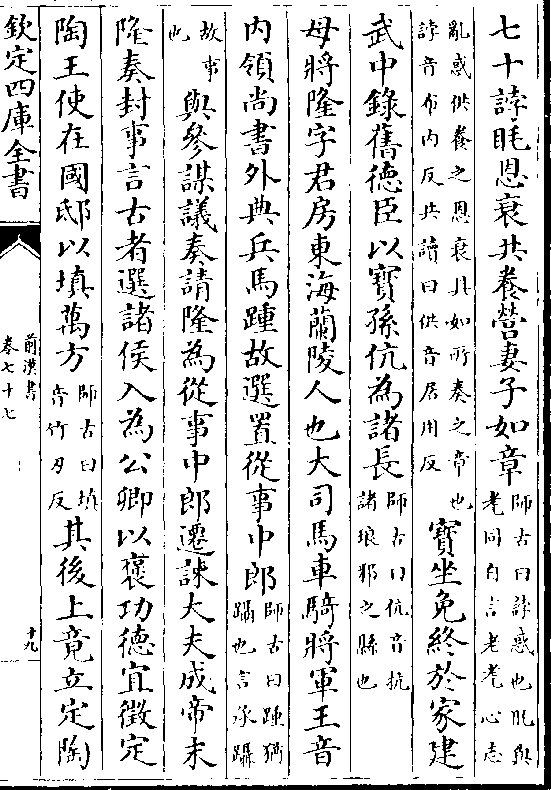 七十誖眊恩衰共養營妻子如章師古曰誖惑也眊與老同自言老耄心志
亂惑供養之恩衰具如所奏之章也誖音布内反共讀曰供音居用反寶坐免終於家建
武中錄舊德臣以寳孫伉為諸長師古曰伉音抗諸琅邪之縣也
母將隆字君房東海蘭陵人也大司馬車騎將軍王音
内領尚書外典兵馬踵故選置從事中郎師古曰踵猶躡也言承躡
故事也與參謀議奏請隆為從事中郎遷諫大夫成帝末
隆奏封事言古者選諸侯入為公卿以襃功德宜徵定
陶王使在國邸以塡萬方師古曰塡音竹刃反其後上竟立定陶
欽定四庫全書
前漢書
卷七十七
十九